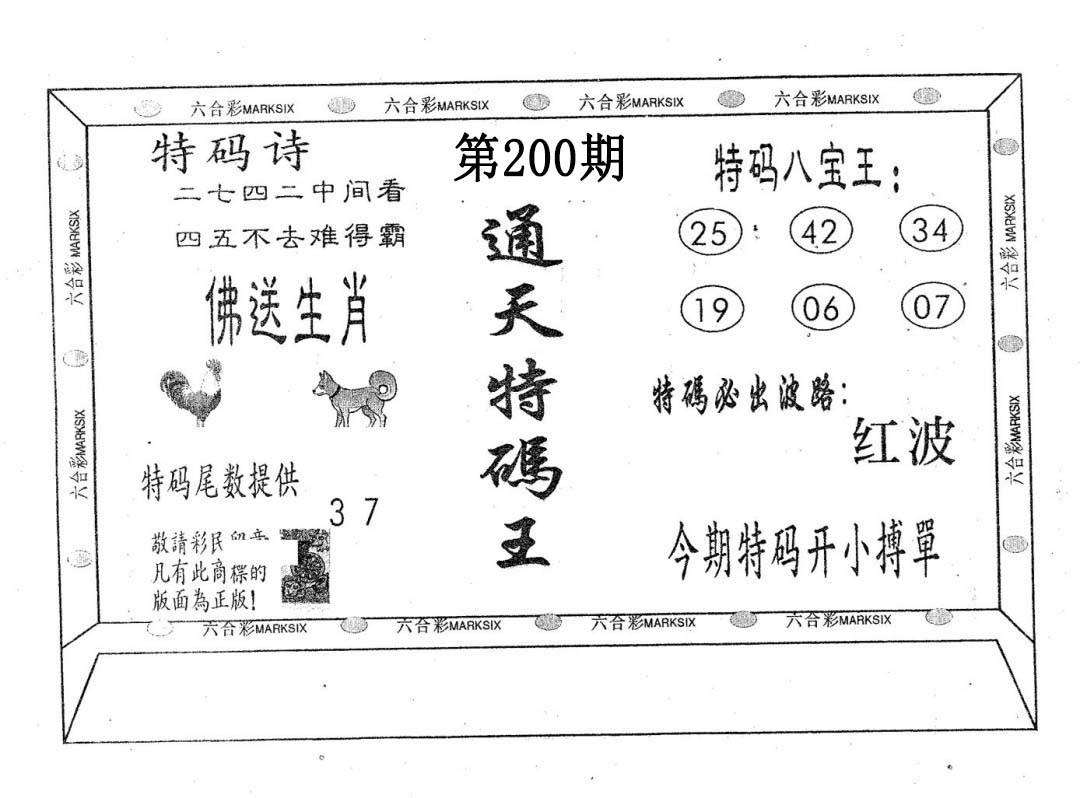 六合彩MARKSIX 六合彩MARKSIX 六合彩MARKSIX 六合彩MARKSIX
第200期
通天特碼王
特码诗
二七四二中间看
四五不去难得霸
佛送生肖
特码尾数提供
3 7
敬請彩民留意
凡有此商標的
版面為正版!
特码八宝王:
25 42 34
19 06 07
特碼必出波路:
红波
今期特码开小搏單
六合彩MARKSIX
六合彩MARKSIX
六合彩MARKSIX
六合彩MARKSIX
六合彩MARKSIX 六合彩MARKSIX 六合彩MARKSIX 六合彩MARKSIX